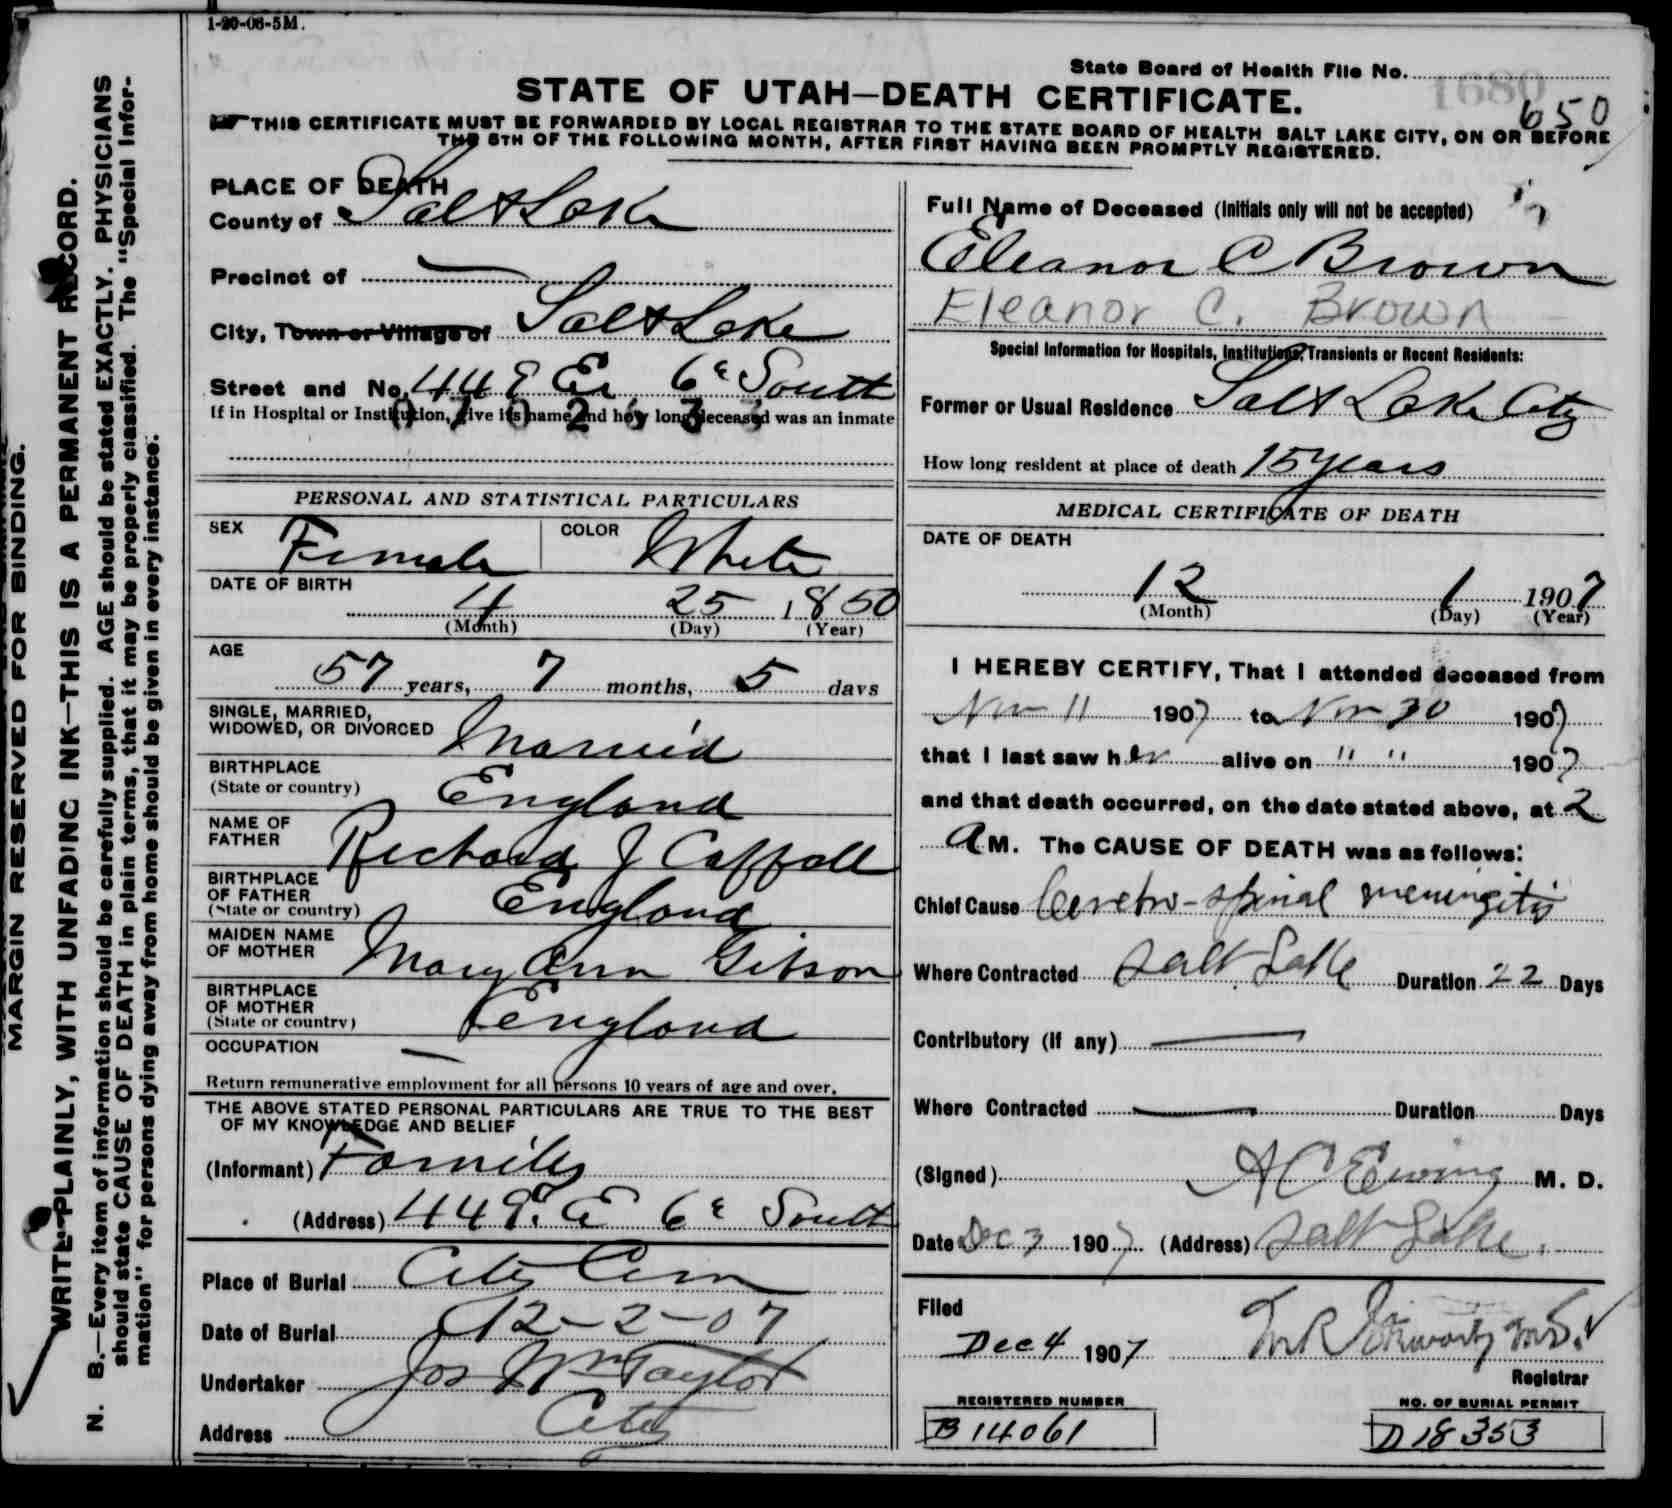 1-20-06-5M.
State Board of Health File No. 1680
650
STATE OF UTAH—DEATH CERTIFICATE.
THIS CERTIFICATE MUST BE FORWARDED BY LOCAL REGISTRAR TO THE STATE BOARD OF HEALTH SALT LAKE CITY, ON OR BEFORE
THE 5TH OF THE FOLLOWING MONTH, AFTER FIRST HAVING BEEN PROMPTLY REGISTERED.
MARGIN RESERVED FOR BINDING.
WRITE PLAINLY, WITH UNFADING INK—THIS IS A PERMANENT RECORD.
N. B.—Every item of information should be carefully supplied. AGE should be stated EXACTLY. PHYSICIANS
should state CAUSE OF DEATH in plain terms, that it may be properly classified. The "Special Infor-
mation" for persons dying away from home should be given in every instance.
PLACE OF DEATH
County of Salt Lake
Precinct of —
City, Town or Village of Salt Lake
Street and No. 449 E 6th South
If in Hospital or Institution, give its name and how long deceased was an inmate
PERSONAL AND STATISTICAL PARTICULARS
SEX Female COLOR White
DATE OF BIRTH
4 25 1850
(Month) (Day) (Year)
AGE
57 years, 7 months, 5 days
SINGLE, MARRIED,
WIDOWED, OR DIVORCED Married
BIRTHPLACE
(State or country) England
NAME OF
FATHER Richard J Caffall
BIRTHPLACE
OF FATHER
(State or country) England
MAIDEN NAME
OF MOTHER Mary Ann Gibson
BIRTHPLACE
OF MOTHER
(State or country) England
OCCUPATION —
Return remunerative employment for all persons 10 years of age and over.
THE ABOVE STATED PERSONAL PARTICULARS ARE TRUE TO THE BEST
OF MY KNOWLEDGE AND BELIEF
(Informant) Family
(Address) 449 E 6th South
Place of Burial City Cem
Date of Burial 12-2-07
Undertaker Jos Wm Taylor
Address City
Full Name of Deceased (Initials only will not be accepted)
Eleanor C Brown
Eleanor C. Brown
Special Information for Hospitals, Institutions, Transients or Recent Residents:
Former or Usual Residence Salt Lake City
How long resident at place of death 15 years
MEDICAL CERTIFICATE OF DEATH
DATE OF DEATH
12 1 1907
(Month) (Day) (Year)
I HEREBY CERTIFY, That I attended deceased from
Nov 11 1907 to Nov 30 1907
that I last saw her alive on " " 1907
and that death occurred, on the date stated above, at 2
A M. The CAUSE OF DEATH was as follows:
Chief Cause Cerebro-spinal meningitis
Where Contracted Salt Lake Duration 22 Days
Contributory (if any) —
Where Contracted — Duration Days
(Signed) A C Ewing M. D.
Date Dec 3 1907 (Address) Salt Lake.
Filed
Dec 4 1907
Registrar
REGISTERED NUMBER
B 14061
NO. OF BURIAL PERMIT
D 18353